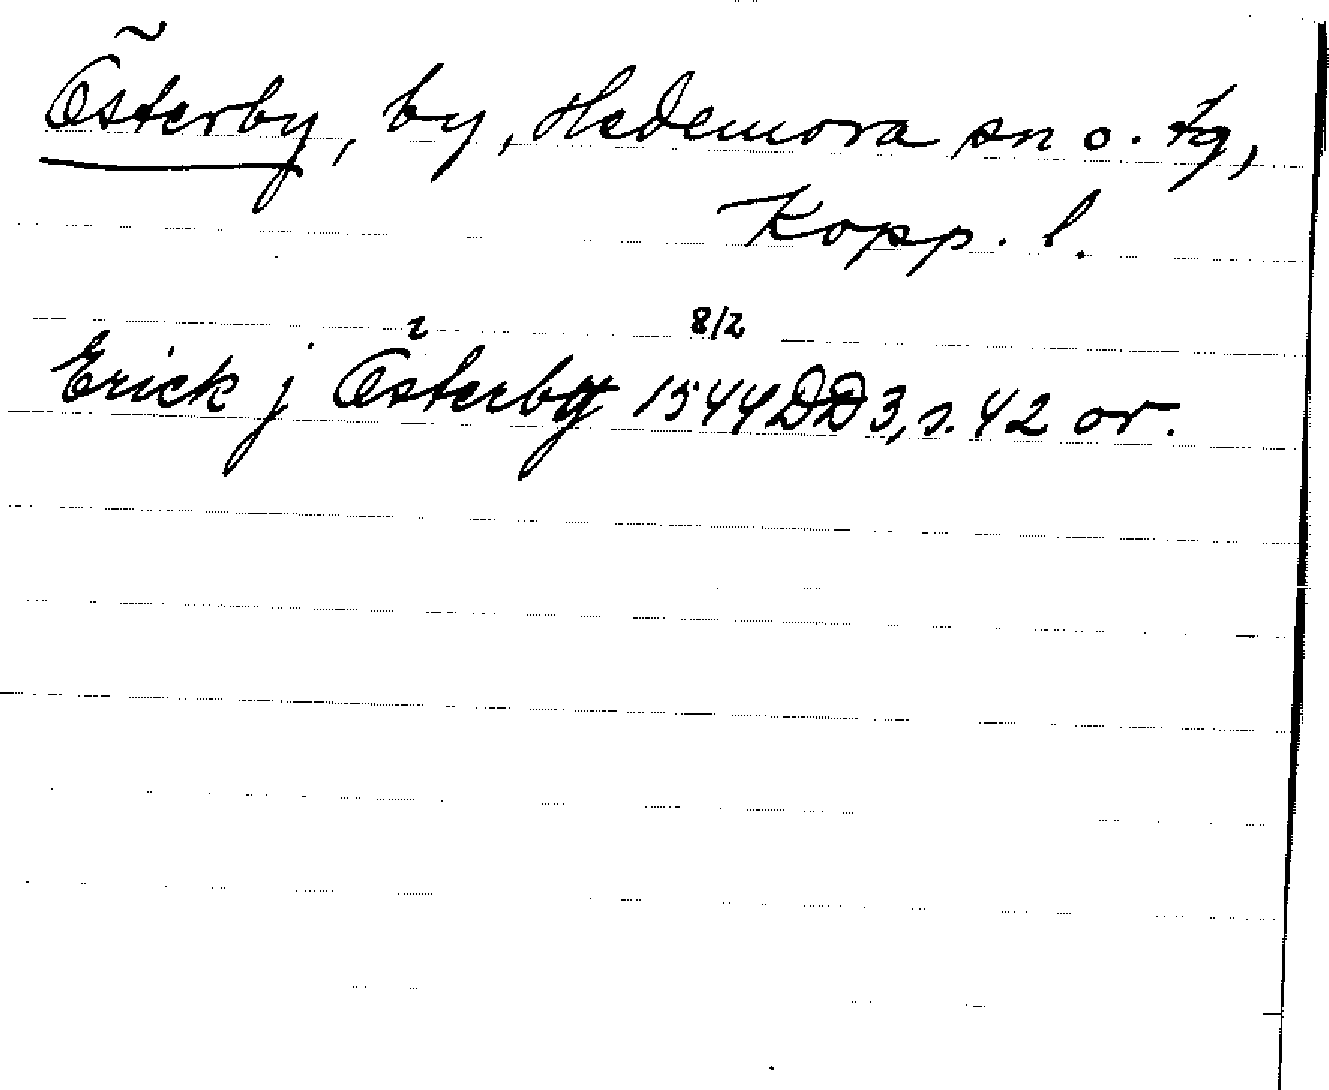 Österby, by, Hedemora sn o. tg,
Kopp. l.
8/2
Erick j Österby 1544 DD 3, s. 42 or.